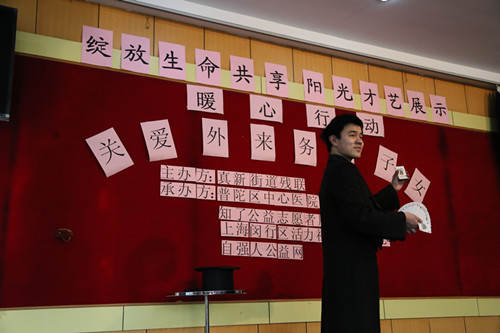 绽放生命共享阳光才艺展示
暖心行动
关爱外来务子女
主办方:真新街道残联
承办方:普陀区中心医院
知了公益志愿者
上海闵行区活力
自强人公益网